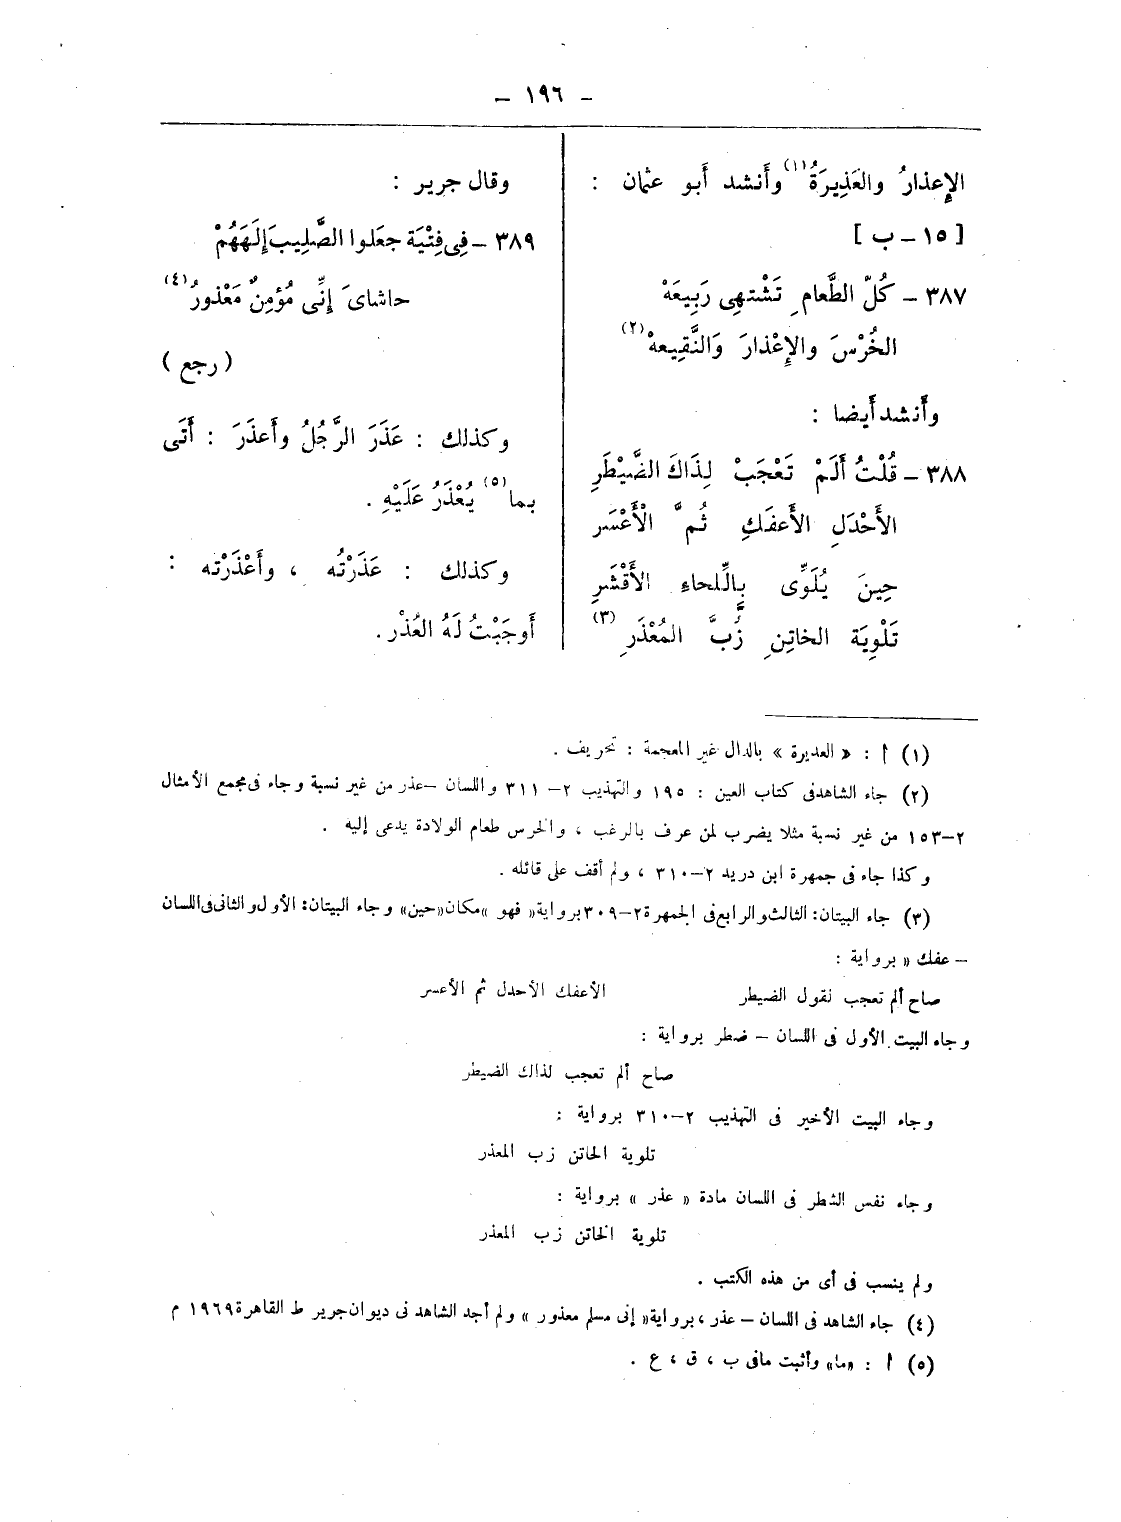 - ١٩٦ -
الإعذارُ والعَذِيرَةُ(١) وأَنشد أَبو عثمان :
[ ١٥ - ب ]
٣٨٧ - كُلّ الطَّعامِ تَشْتهِى رَبِيعَهْ
الخُرْسَ والإِعْذارَ وَالنَّقِيعهْ(٢)
وأَنشد أَيضا :
٣٨٨ - قُلْتُ أَلَمْ تَعْجَبْ لِذَاكَ الضَّيْطَرِ
الأَحْدَلِ الأَعفَكِ ثُمَّ الْأَعْسَر
حِينَ يُلَوِّى بِاللِّحاءِ الأَقْشَرِ
تَلْوِيَة الخاتِنِ زُبَّ المُعْذَرِ(٣)
وقال جرير :
٣٨٩ - فِى فِتْيَة جعَلوا الصَّلِيبَ إِلَهَهُمْ
حاشاىَ إِنِّى مُؤمِنٌ مَعْذورُ(٤)
( رجع )
وكذلك : عَذَرَ الرَّجُلُ وأَعذَرَ : أَتَى
بما(٥) يُعْذَرُ عَلَيْهِ .
وكذلك : عَذَرْتُه ، وأَعْذَرْته :
أَوجَبْتُ لَهُ العُذْر .
(١) أ : « العديرة » بالدال غير المعجمة : تحريف .
(٢) جاء الشاهد فى كتاب العين : ١٩٥ والتهذيب ٢-٣١١ واللسان -عذر من غير نسبة وجاء فى مجمع الأمثال
٢-١٥٣ من غير نسبة مثلا يضرب لمن عرف بالرغب ، والخرس طعام الولادة يدعى إليه .
وكذا جاء فى جمهرة ابن دريد ٢-٣١٠ ، ولم أقف على قائله .
(٣) جاء البيتان: الثالث والرابع فى الجمهرة ٢-٣٠٩ برواية« فهو »مكان«حين» وجاء البيتان: الأول والثانى فى اللسان
- عفك « برواية :
صاح ألم تعجب نقول الضيطر الأعفك الأحدل ثم الأعسر
وجاء البيت الأول فى اللسان - ضطر برواية :
صاح ألم تعجب لذاك الضيطر
وجاء البيت الأخير فى التهذيب ٢-٣١٠ برواية :
تلوية الخاتن زب المعذر
وجاء نفس الشطر فى اللسان مادة « عذر » برواية :
تلوية الخاتن زب المعذر
ولم ينسب فى أى من هذه الكتب .
(٤) جاء الشاهد فى اللسان - عذر ، برواية« إنى مسلم معذور » ولم أجد الشاهد فى ديوان جرير ط القاهرة ١٩٦٩ م
(٥) أ : «ما» وأثبت مافى ب ، ق ، ع .